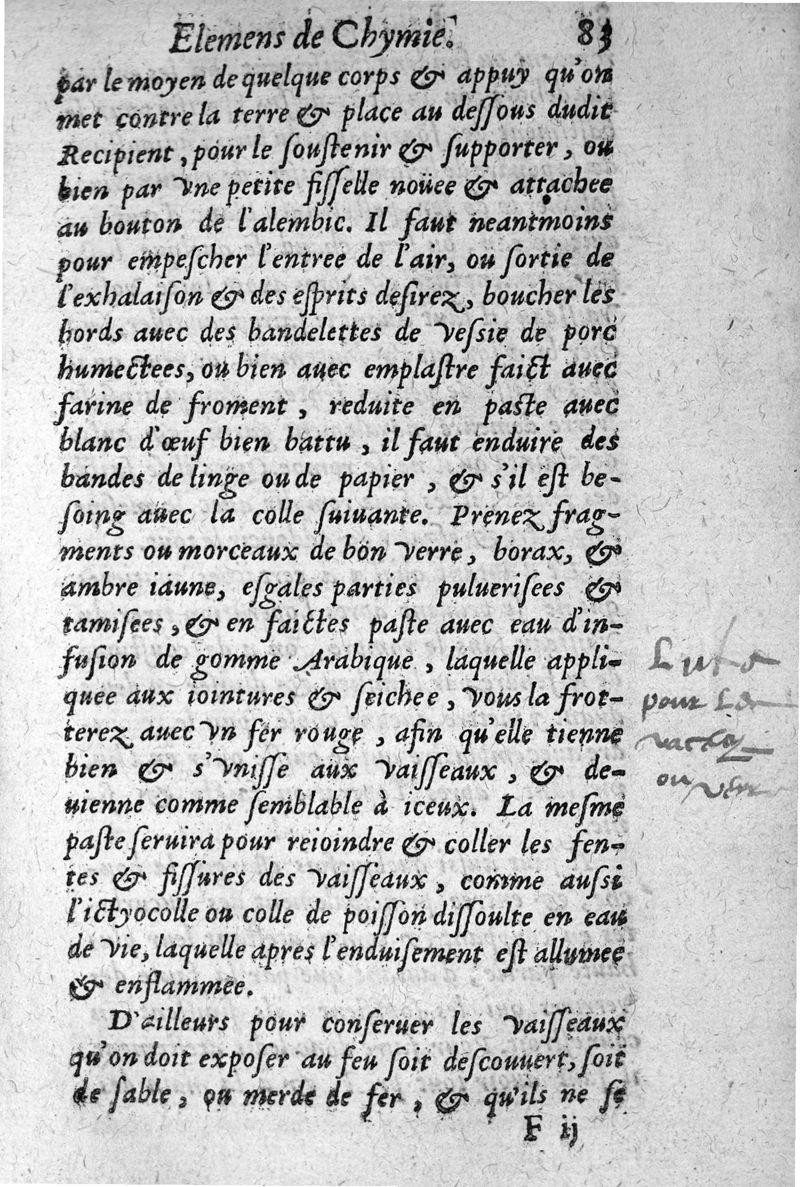 Elemens de Chymie. 83
par le moyen de quelque corps & appuy qu'on
met contre la terre & place au deſſous dudit
Recipient, pour le ſouſtenir & ſupporter, ou
bien par vne petite fiſſelle noüee & attachee
au bouton de l'alembic. Il faut neantmoins
pour empeſcher l'entree de l'air, ou ſortie de
l'exhalaiſon & des eſprits deſirez, boucher les
bords auec des bandelettes de veſſie de porc
humectees, ou bien auec emplaſtre faict auec
farine de froment, reduite en paſte auec
blanc d'œuf bien battu, il faut enduire des
bandes de linge ou de papier, & s'il eſt be-
ſoing auec la colle ſuiuante. Prenez frag-
ments ou morceaux de bon verre, borax, &
ambre iaune, eſgales parties puluerisees &
tamiſees, & en faictes paſte auec eau d'in-
fuſion de gomme Arabique, laquelle appli-
quee aux iointures & ſeichee, vous la frot-
terez auec vn fer rouge, afin qu'elle tienne
bien & s'vniſſe aux vaiſſeaux, & de-
uienne comme ſemblable à iceux. La meſme
paſte ſeruira pour reioindre & coller les fen-
tes & fiſſures des vaiſſeaux, comme auſsi
l'ictyocolle ou colle de poiſſon diſſoulte en eau
de vie, laquelle apres l'enduiſement eſt allumee
& enflammee.
D'ailleurs pour conſeruer les vaiſſeaux
qu'on doit expoſer au feu ſoit deſcouuert, ſoit
de ſable, ou merde de fer, & qu'ils ne ſe
F ij
pour
ou